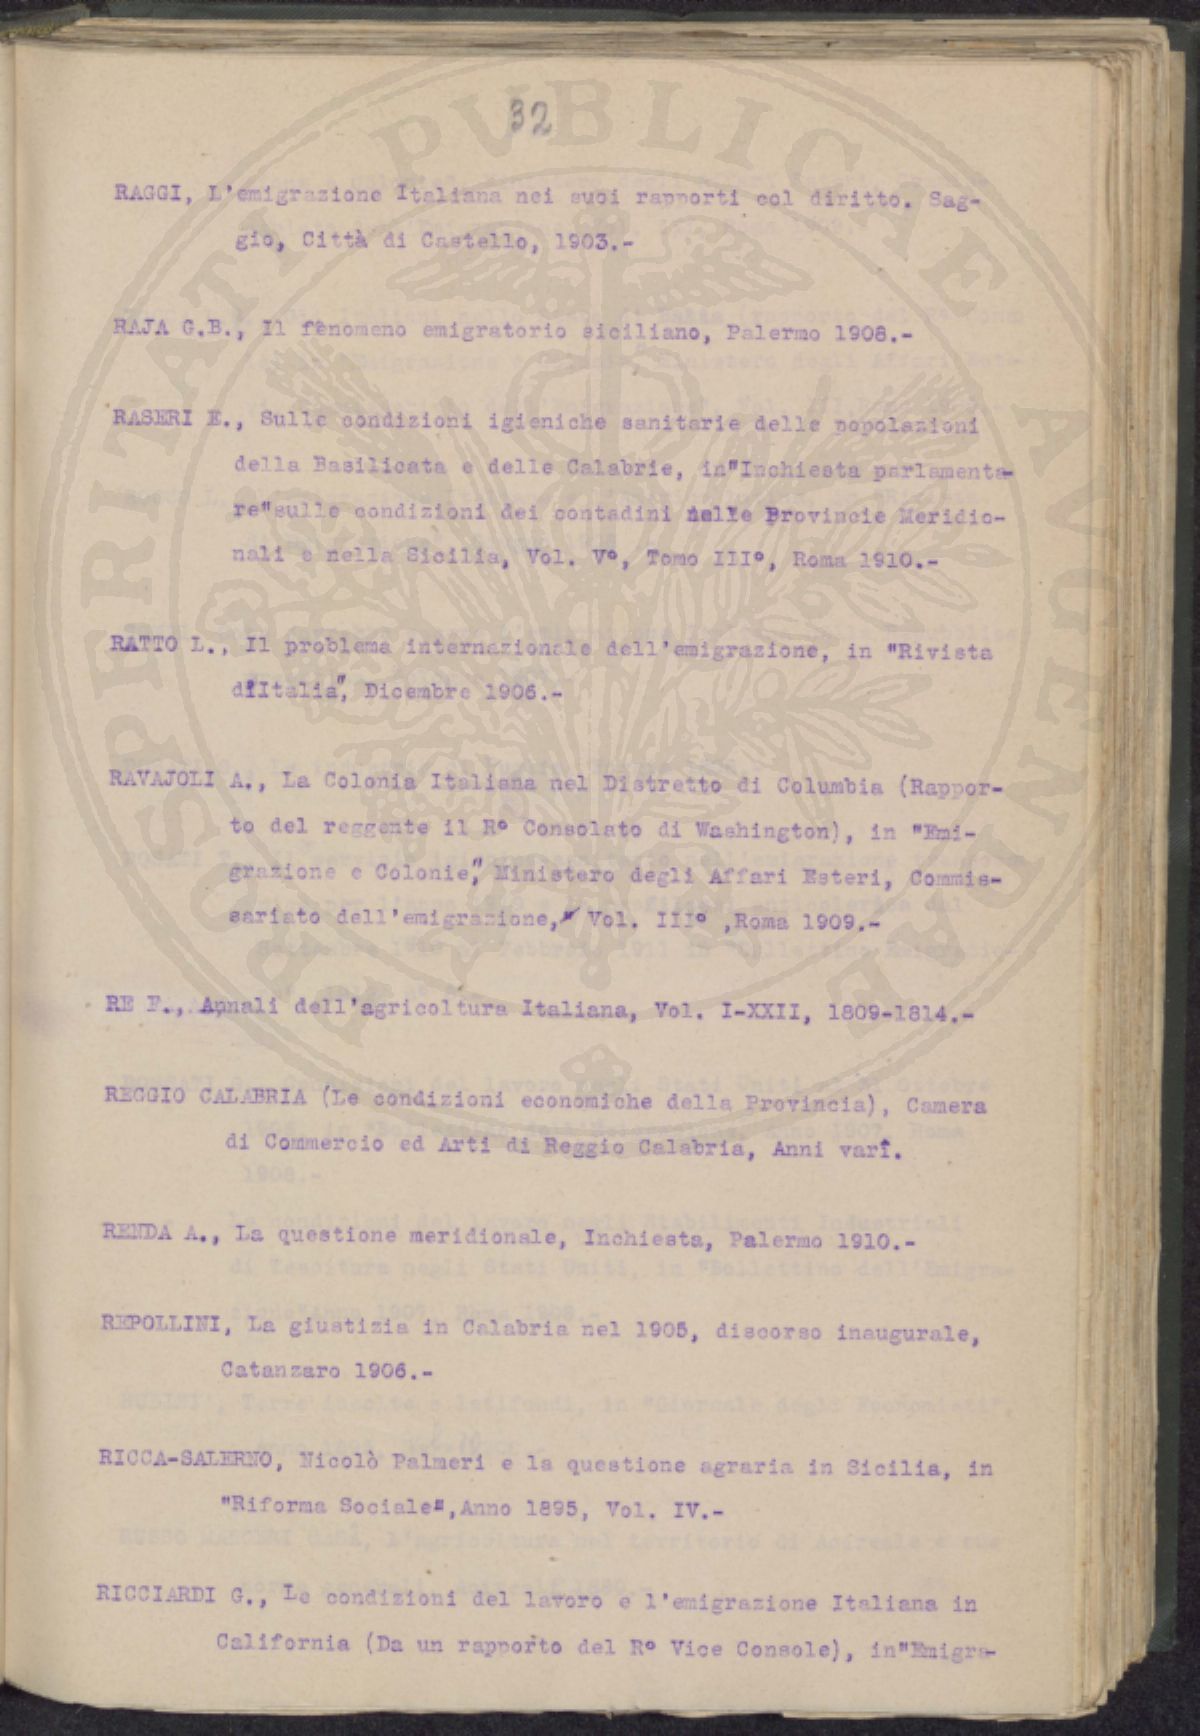 32
RAGGI, L'emigrazione Italiana nei suoi rapporti col diritto. Sag-
gio, Città di Castello, 1903.-
RAJA G.B., Il fenomeno emigratorio siciliano, Palermo 1908.-
RASERI E., Sulle condizioni igieniche sanitarie delle popolazioni
della Basilicata e delle Calabrie, in"Inchiesta parlamenta-
re"sulle condizioni dei contadini nelle Provincie Meridio-
nali e nella Sicilia, Vol. V°, Tomo III°, Roma 1910.-
RATTO L., Il problema internazionale dell'emigrazione, in "Rivista
d'Italia", Dicembre 1906.-
RAVAJOLI A., La Colonia Italiana nel Distretto di Columbia (Rappor-
to del reggente il R° Consolato di Washington), in "Emi-
grazione e Colonie", Ministero degli Affari Esteri, Commis-
sariato dell'emigrazione, Vol. III° ,Roma 1909.-
RE F., Annali dell'agricoltura Italiana, Vol. I-XXII, 1809-1814.-
REGGIO CALABRIA (Le condizioni economiche della Provincia), Camera
di Commercio ed Arti di Reggio Calabria, Anni varî.
RENDA A., La questione meridionale, Inchiesta, Palermo 1910.-
REPOLLINI, La giustizia in Calabria nel 1905, discorso inaugurale,
Catanzaro 1906.-
RICCA-SALERNO, Nicolò Palmeri e la questione agraria in Sicilia, in
"Riforma Sociale",Anno 1895, Vol. IV.-
RICCIARDI G., Le condizioni del lavoro e l'emigrazione Italiana in
California (Da un rapporto del R° Vice Console), in"Emigra-
PUBLICAE AUGENDAE PROSPERITATI